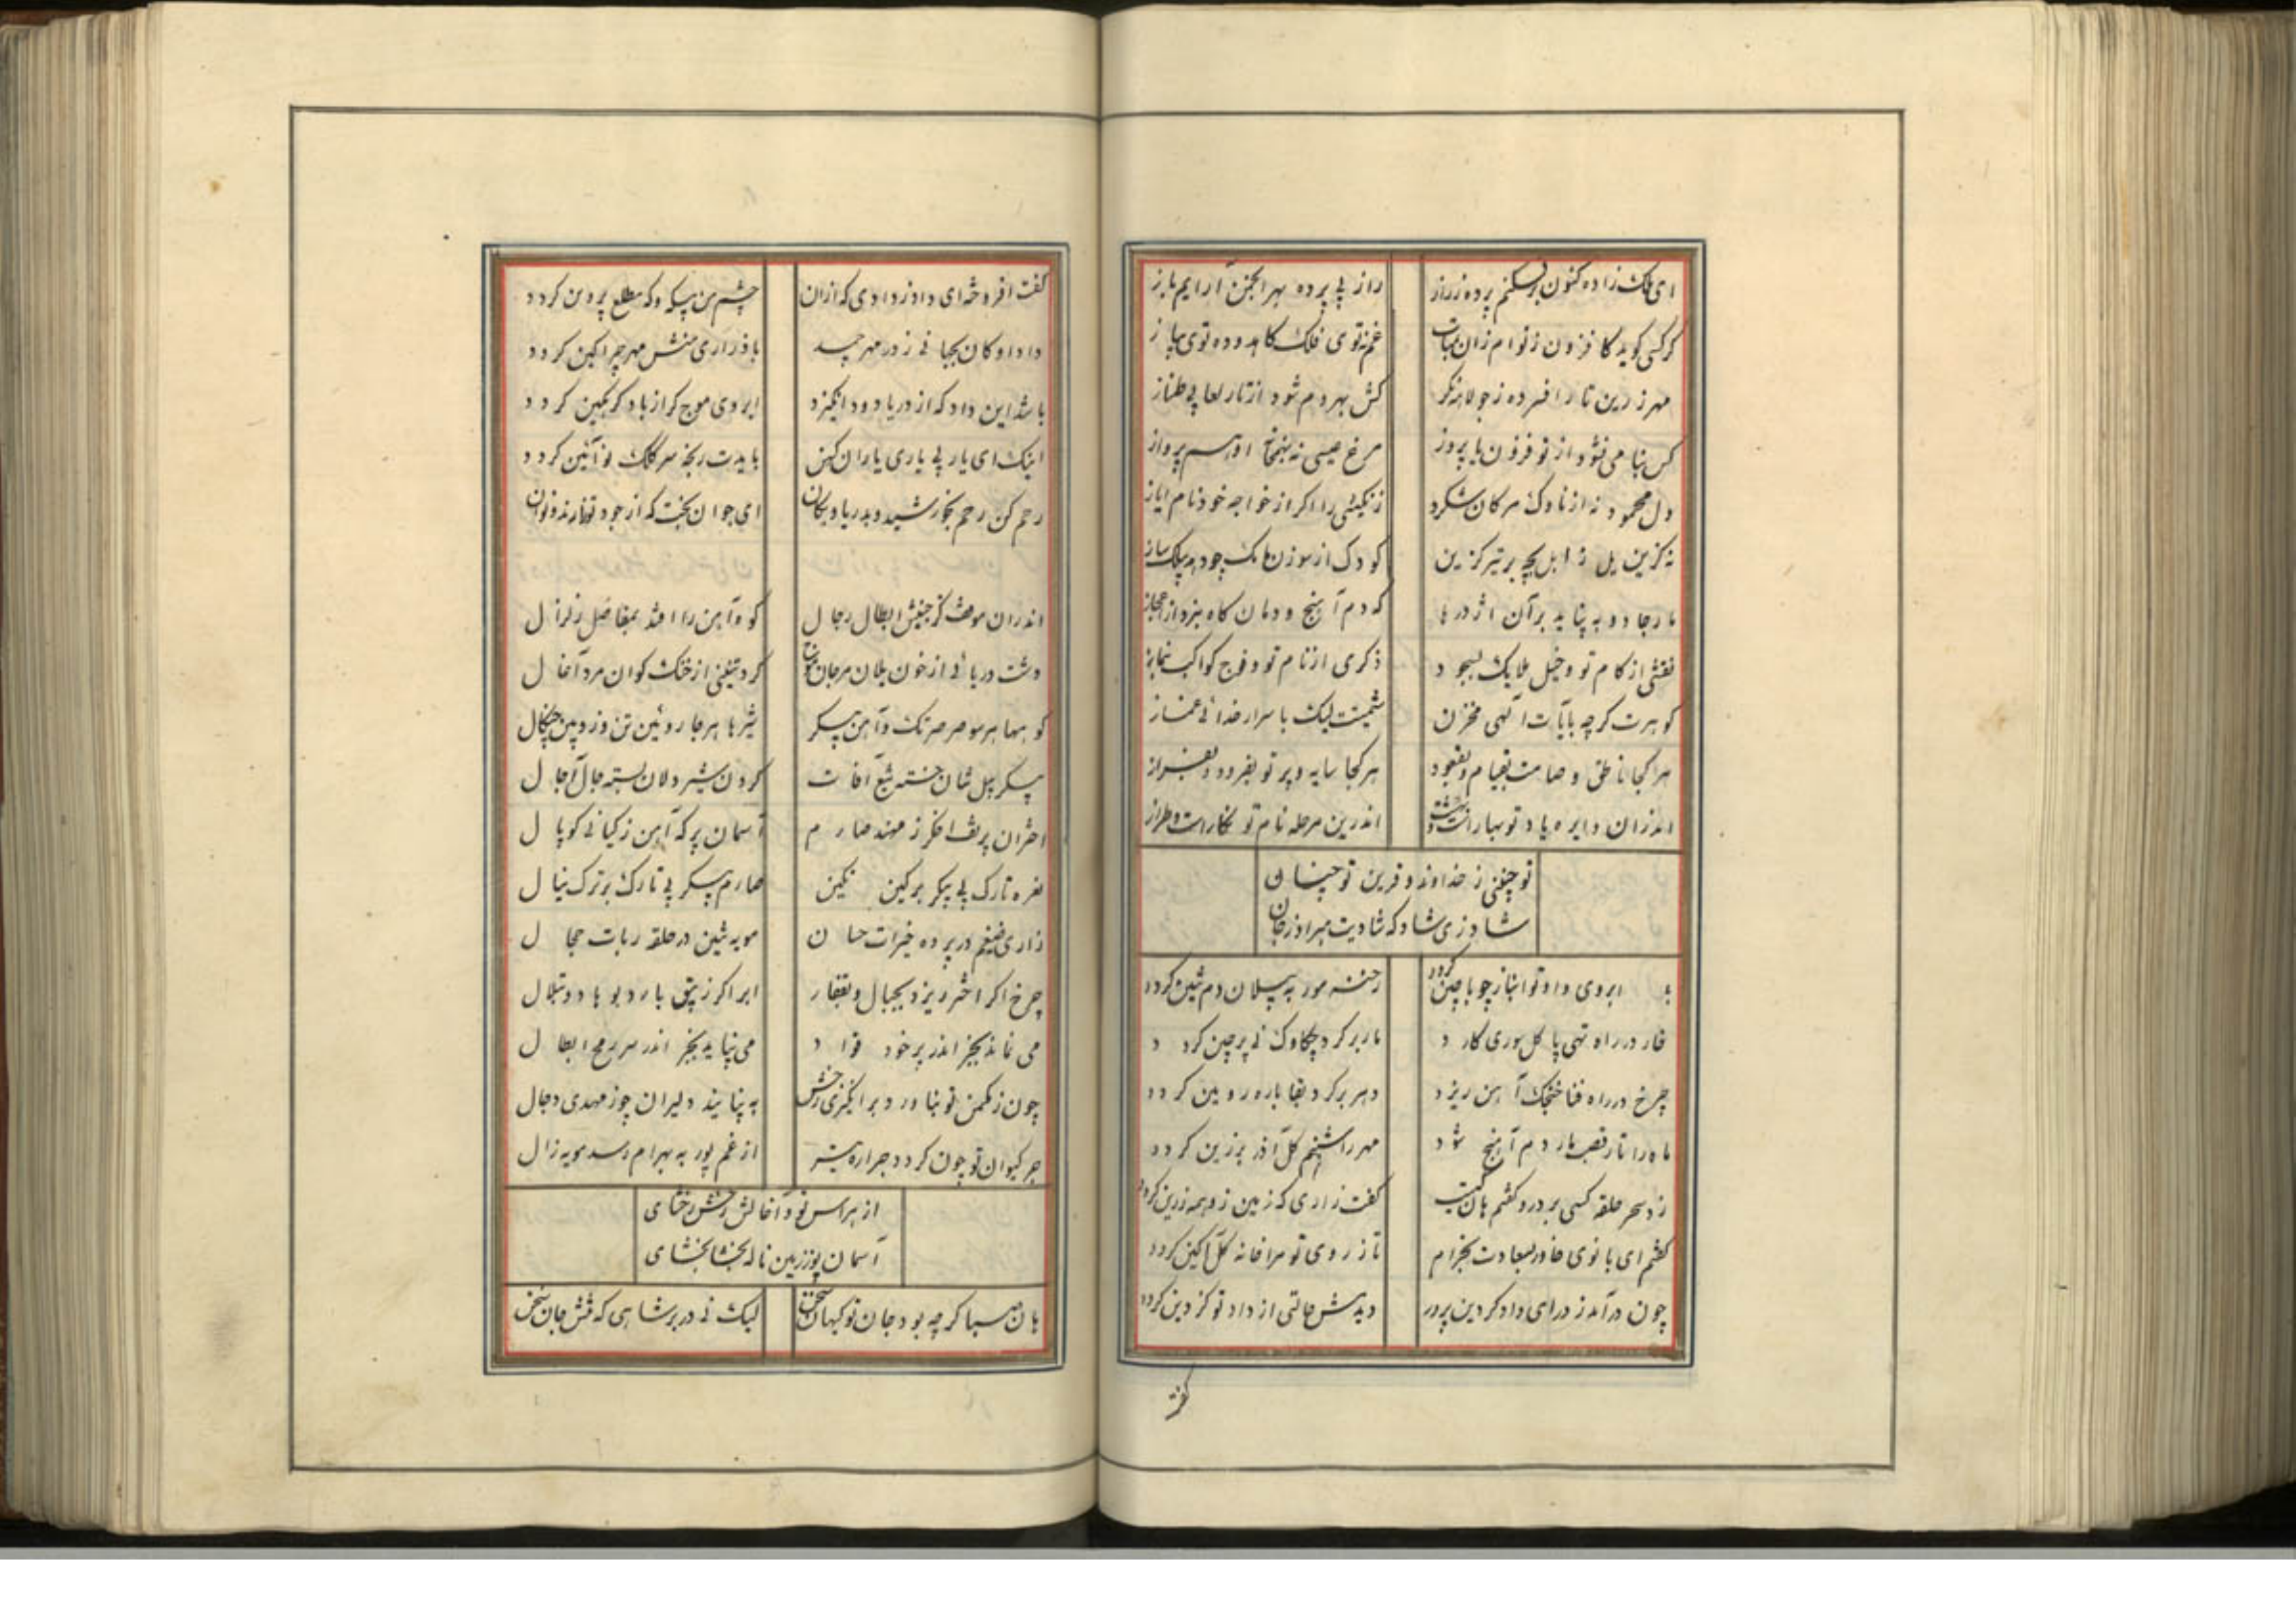 ای ملک زاده کنون برفکنم پرده ز راز
راز بی پرده بهر انجمن آرایم باز
گر کسی گوید کافزون ز توام زان
غم نه توی فلک کاهد و ده توی پیاز
مهر زرین تار افسرده ز جولاهه نگر
کش بهر دم شود از تار لعابی طناز
کس بنا می نشود از تو فزون با پروز
مرغ عیسی نه بهنجار اوهم پرواز
دل محمود نه از ناوک مژکان شکرد
زنگیئی را اگر از خواجه خود نام ایاز
نه گزین یل زابل بچه بر تیر گزین
کودک از سوزن
مار جادو به نپاید بر آن اژدرها
که دم آهنج و دمان گاه نبرد از اعجاز
نقشی از کام تو و خیل ملایک بسجود
ذکری از نام تو و فوج کواکب بنماز
گوهرت گرچه بآیات الهی مخزن
شیمتت لیک باسرار خدائی غماز
هر کجا ناطق و صامت بقیام و بقعود
هر کجا سایه و پرتو بفرود و بفراز
اندران دایره یاد تو بهار است و بهشت
اندرین مرحله نام تو نگار است و طراز
تو چنینی ز خداوند و قرین تو چنان
شاد زی شاد که شادیت مهراد ز جان
ابروی داد تو انباز چو با چین گردد
رخنه مور به پیلان دم تنین گردد
خار در راه تهی پا گل سوری کارد
مار بر گرد چکاوک نی پرچین گردد
چرخ در راه فنا خنجک آهن ریزد
دهر بر گرد بقا باره روئین گردد
ماه را تار قصب مار دم آهنج شود
مهر را شبنم گل آذر برزین گردد
زد سحر حلقه کسی بر در و گفتم هان کیت
گفت زاری که زمین زو همه زرین گردد
گفتم ای بانوی خاور بسعادت بخرام
تا ز روی تو مرا خانه گل آگین گردد
چون درآمد ز در ای دادگر دین پرور
دیدمش حالتی از داد تو کز دین گردد
گفت
گفت افروخته‌ای داد ز دادی که ازان
چشم من بیگه و گه مطلع پروین گردد
دادا و کان بجهانی ز در مهر چه شد
با ذراری منش مهر چرا کین گردد
باشد این داد که از دریا دود انگیزد
ابروی موج گر از باد گره گین گردد
اینک ای یار پی یاری یاران کهن
بایدت رنجه سر کلک نو آئین گردد
رحم کن رحم بخورشید و بدریا و بکان
ای جوان بخت که از جود تو دارند فغان
اندران موقف کز جنبش ابطال رجال
کوه آهن را افتد بمفاصل زلزال
دشت دریائی از خون یلان مرجان موج
گرد تیغی از خنک گوان مرد آغال
کوهها هر سو صرصر تک و آهن پیکر
شیرها هر جا روئین تن و زوبین چنگال
پیکر پیل تنان خسته تیغ آفات
گردن شیر دلان بسته حبال آجال
اختران پر تف اخگر ز مهند صارم
آسمان پر که آهن ز کیانی کوپال
نعره تارک بی پیکر بر کین نگین
صارم پیکر بی تارک بر ترک نبال
زاری ضیغم در پرده خیرات حسان
مویه تنین در حلقه ربات حجال
چرخ اگر اختر ریزد بجبال و بقفار
ابر اگر زیبق بارد بوهاد و بتلال
می نماند بجز اندر پر خود قواد
می نپاید بجز اندر سر رمح ابطال
چون ز مکمن تو بناورد برانگیزی رخش
به نپایند دلیران چو ز مهدی دجال
جر کیوان تو چون گردد جراره تیر
از غم پور به بهرام رسد مویه زال
از هراس تو و آغالش رخش رخشای
آسمان پوزد زمین ناله ببخشا بخشای
هان سپا گرچه بود جان تو کیهان سخن
لیک نی در بر شاهی که تنش جان سخن